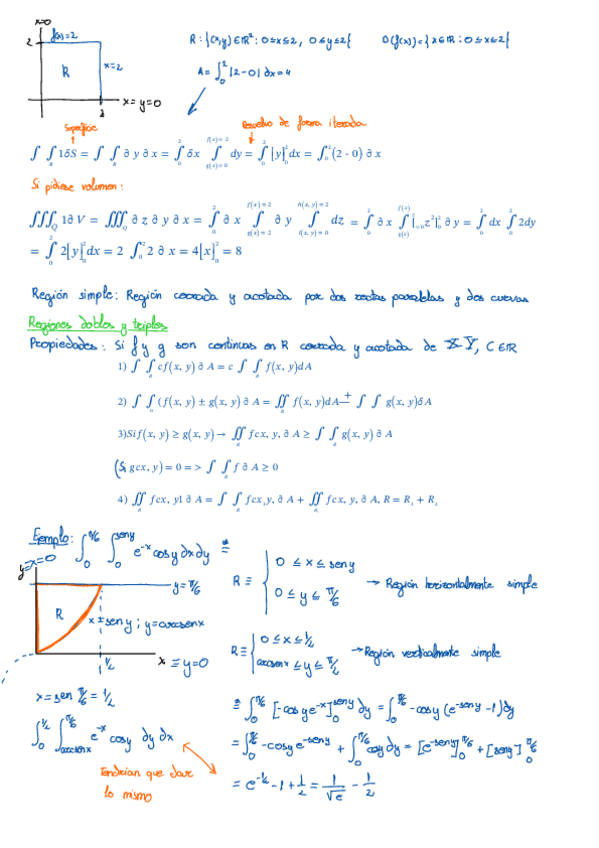 x=0
f(x)=2
2
R
x=2
2
x = y=0
R : {(x,y) ∈ ℝ² : 0≤x≤2, 0≤y≤2} D(f(x)) = {x ∈ ℝ : 0≤x≤2}
A = ∫₀² |2-0| dx = 4
Superficie
Resuelvo de forma iterada
∫ ∫_R 1δS = ∫ ∫_R ∂y∂x = ∫₀² δx ∫_{g(x)=0}^{f(x)=2} dy = ∫₀² [y]₀² dx = ∫₀² (2 - 0) ∂x
Si pidiese volumen:
∭_Q 1∂V = ∭_Q ∂z∂y∂x = ∫₀² ∂x ∫_{g(x)=2}^{f(x)=2} ∂y ∫_{i(x,y)=0}^{h(x,y)=2} dz = ∫₀² ∂x ∫_{g(x)}^{f(x)} [₌₀z²]₀² ∂y = ∫₀² dx ∫₀² 2dy
= ∫₀² 2[y]₀² dx = 2 ∫₀² 2∂x = 4[x]₀² = 8
Región simple: Región cerrada y acotada por dos rectas paralelas y dos curvas
Regiones dobles y triples
Propiedades: Si f y g son continuas en R cerrada y acotada de X-Y, C∈ℝ
1) ∫ ∫_R cf(x, y)∂A = c ∫ ∫_R f(x, y)dA
2) ∫ ∫_R (f(x, y) ± g(x, y)∂A = ∬_R f(x, y)dA ± ∫ ∫_R g(x, y)δA
3)Sif(x, y) ≥ g(x, y) → ∬_R fcx, y, ∂A ≥ ∫ ∫_R g(x, y)∂A
(Si gcx, y) = 0 = > ∫ ∫_R f∂A ≥ 0
4) ∬_R fcx, y1∂A = ∫ ∫_R fcx,y, ∂A + ∬_R fcx, y, ∂A, R = R₁ + R₂
Ejemplo: ∫₀^{π/6} ∫₀^{seny} e⁻ˣ cosy dx dy ≝
y
x=0
y=π/6
R
x=seny ; y=arcsenx
1/2
x ≡ y=0
R ≡ { 0 ≤ x ≤ seny
0 ≤ y ≤ π/6
→ Región horizontalmente simple
R ≡ { 0 ≤ x ≤ 1/2
arcsenx ≤ y ≤ π/6
→ Región verticalmente simple
x = sen π/6 = 1/2
∫₀^{1/2} ∫_{arcsenx}^{π/6} e⁻ˣ cosy dy dx
Tendrían que dar lo mismo
≝ ∫₀^{π/6} [-cosy e⁻ˣ]₀^{seny} dy = ∫₀^{π/6} -cosy (e^{-seny} - 1) dy
= ∫₀^{π/6} -cosy e^{-seny} + ∫₀^{π/6} cosy dy = [e^{-seny}]₀^{π/6} + [seny]₀^{π/6}
= e^{-1/2} - 1 + 1/2 = 1/√e - 1/2